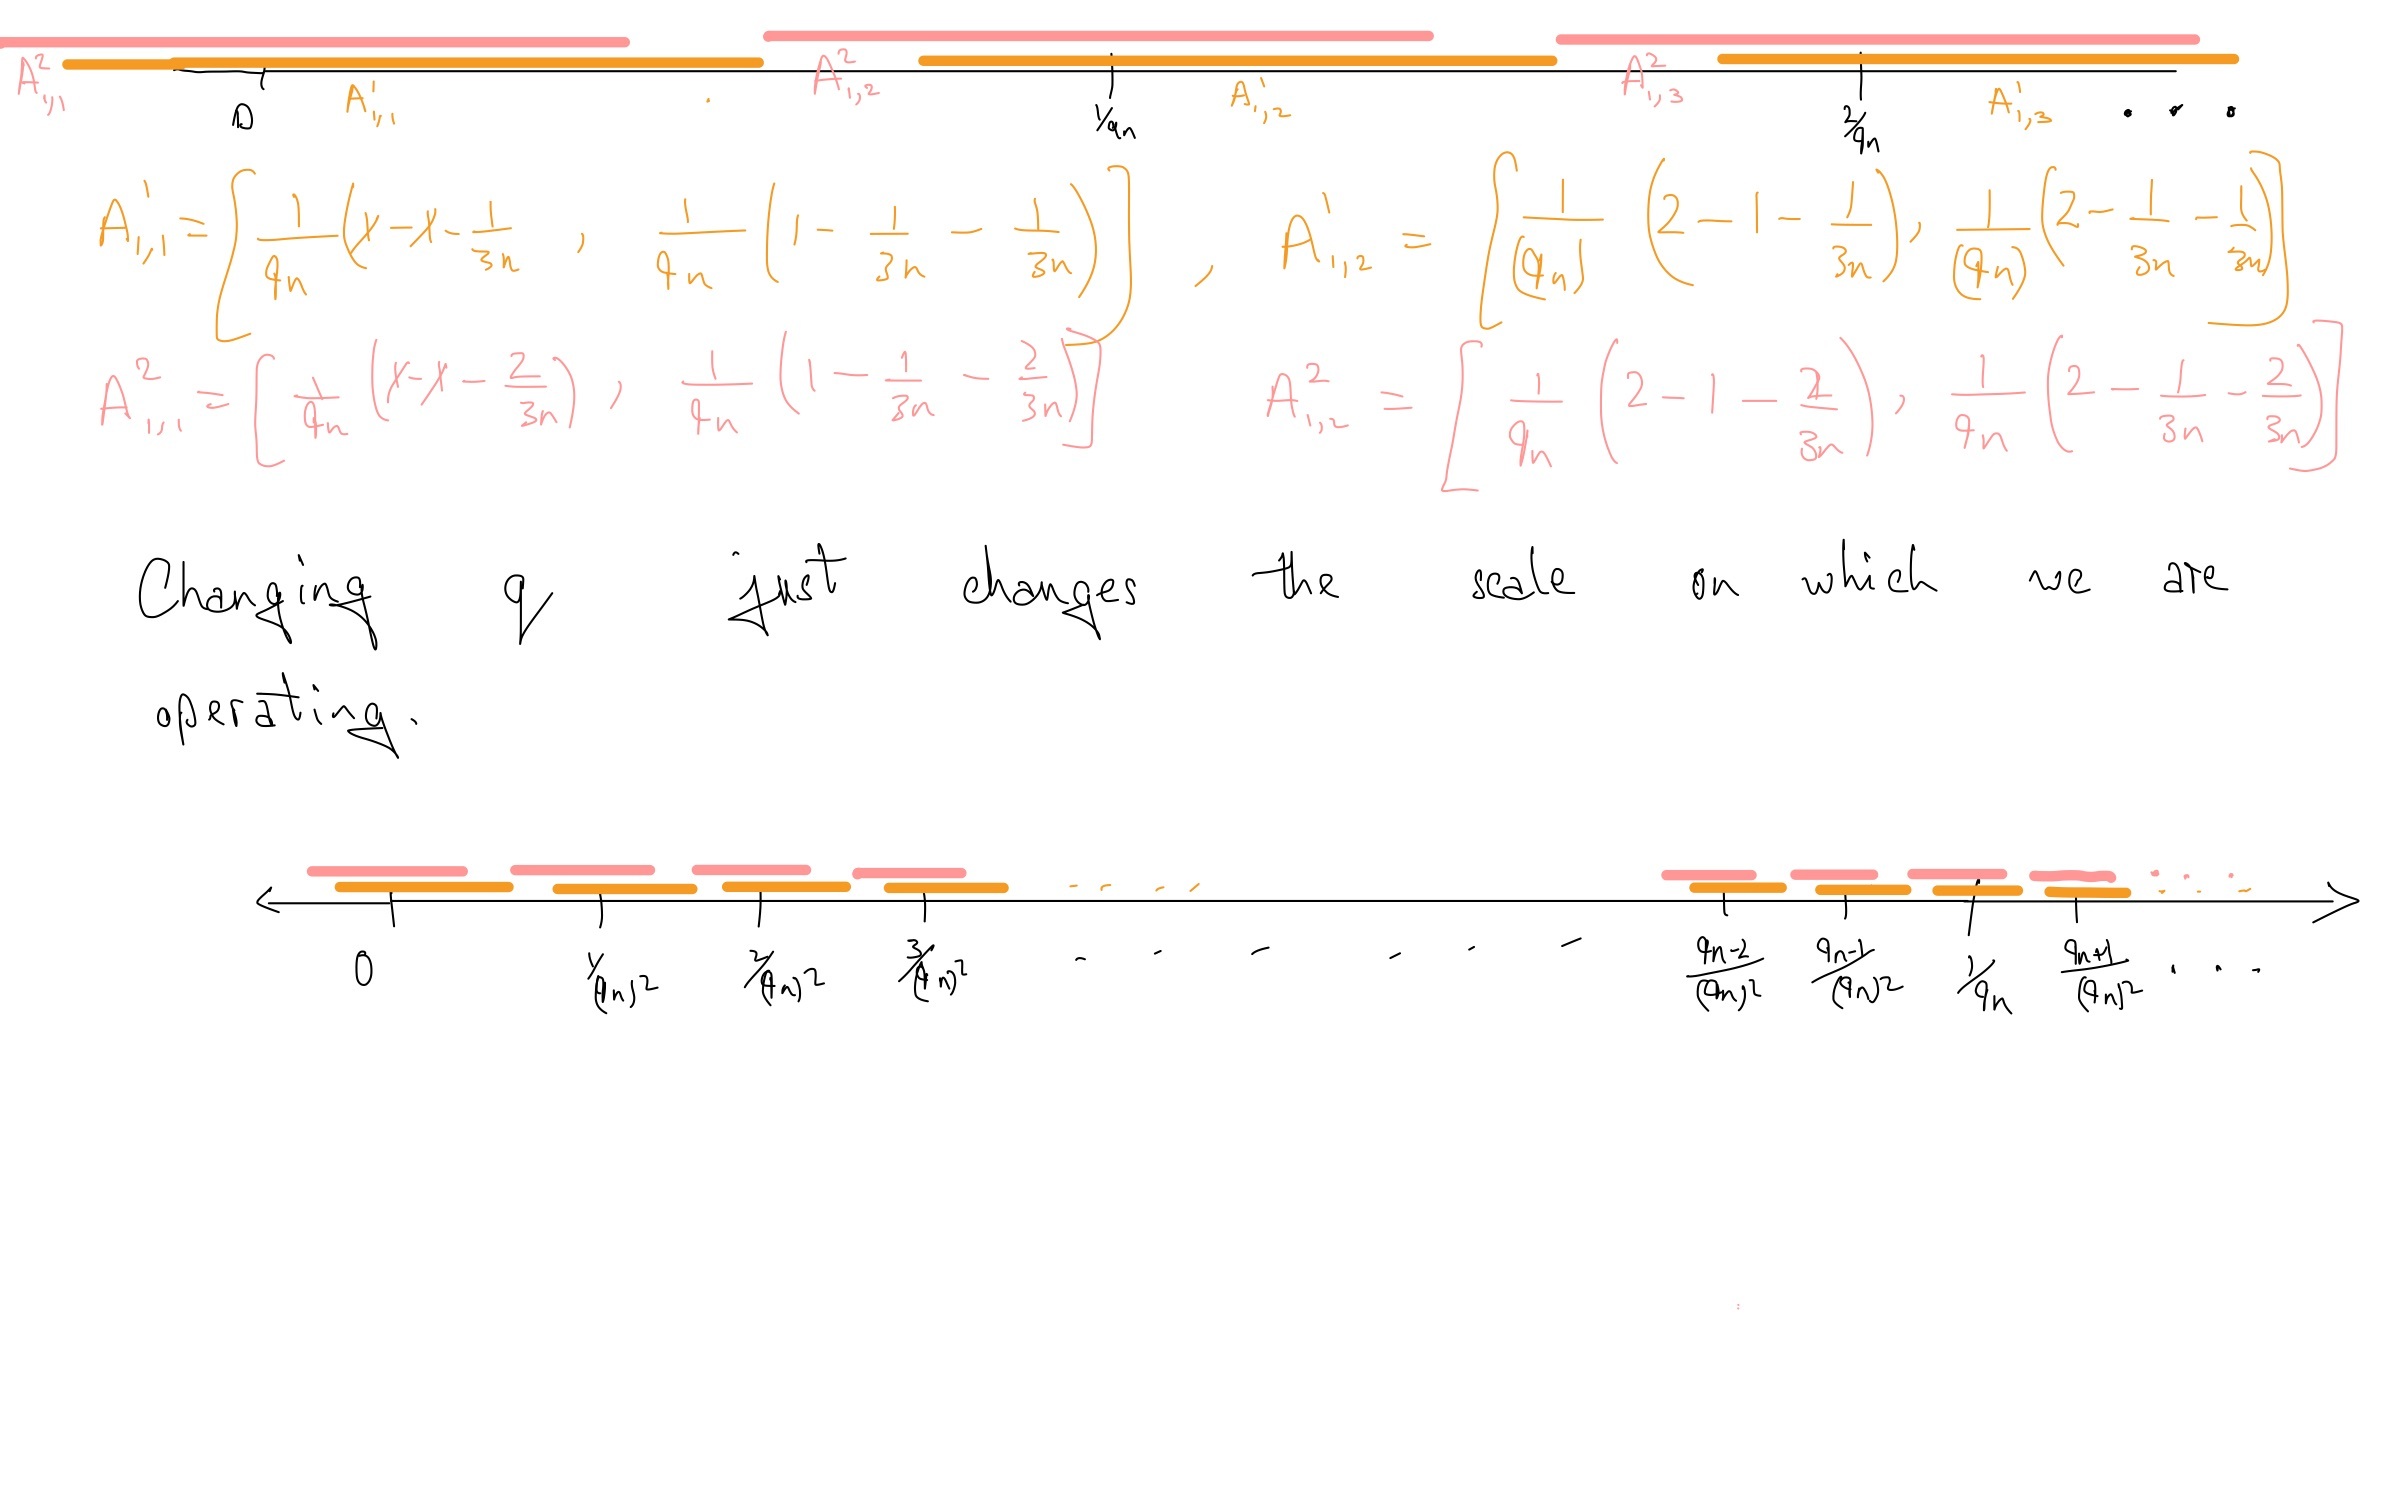 A²₁,₁ A¹₁,₁ A²₁,₂ A¹₁,₂ A²₁,₃ A¹₁,₃
0 1/9n 2/9n . . .
A¹₁,₁ = [ 1/9n (1 - 1 - 1/3n , 1/9n (1 - 1/3n - 1/3n) ] , A¹₁,₂ = [ 1/(9n) (2 - 1 - 1/3n) , 1/(9n) (2 - 1/3n - 1/3n) ]
A²₁,₁ = [ 1/9n (1 - 1 - 2/3n) , 1/9n (1 - 1/3n - 2/3n) ] A²₁,₂ = [ 1/9n (2 - 1 - 2/3n) , 1/9n (2 - 1/3n - 2/3n) ]
Changing q just changes the scale on which we are
operating.
0 1/(9n)² 2/(9n)² 3/(9n)² - - - - - - 9n-2/(9n)² 9n-1/(9n)² 1/9n 9n+1/(9n)² . . .